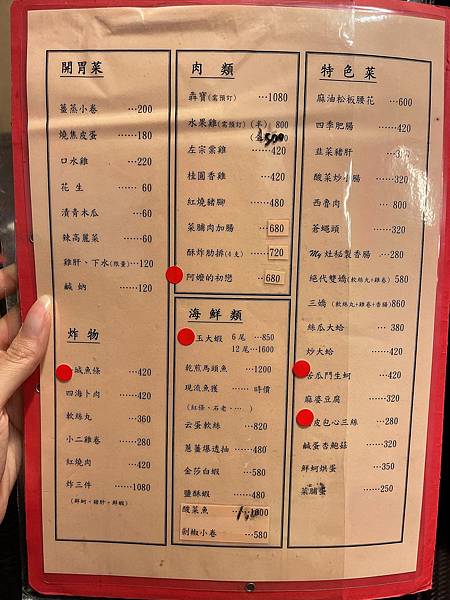 開胃菜
薑蒸小卷 …200
燒焦皮蛋 …180
口水雞 …220
花生 …… 60
漬青木瓜 …60
辣高麗菜 …… 60
雞肝、下水(限量)…120
鹹蚋 …… 120
炸物
鹹魚條 …420
四海卜肉 …… 420
軟絲丸 …360
小二雞卷 …280
紅燒肉 …420
炸三件 ……1080
(鮮蚵。豬肝。鮮蝦)
肉類
(需預訂) …1080
水果雞(需預訂)(半) 800
左宗棠雞 ……420
桂圓香雞 …420
紅燒豬腳 ……480
菜脯肉加腸 …680
酥炸肋排(4支) ……720
阿嬤的初戀 …680
海鮮類
玉大蝦 6尾 …850
12尾 …1600
乾煎馬頭魚 …1200
現流魚獲 …… 時價
(紅條、石老、…)
云蛋軟絲 …820
蔥薑爆透抽 ……480
金莎白蝦 …580
鹽酥蝦 ……480
酸菜魚
剝椒小卷 …580
特色菜
麻油松板腰花 …600
四季肥腸 ……420
韭菜豬肝
酸菜炒小腸 ……320
西魯肉 … 800
蒼蠅頭 ……320
My灶秘製香腸 …280
絕代雙嬌(軟絲丸+雞卷) 580
三嬌(軟絲丸+雞卷+香腸)860
絲瓜大蛤 … 380
炒大蛤 …420
苦瓜鬥生蚵 …420
麻婆豆腐 ……320
皮包心三絲 …280
鹹蛋杏鮑菇 …320
鮮蚵烘蛋 …350
菜脯蛋 ……250